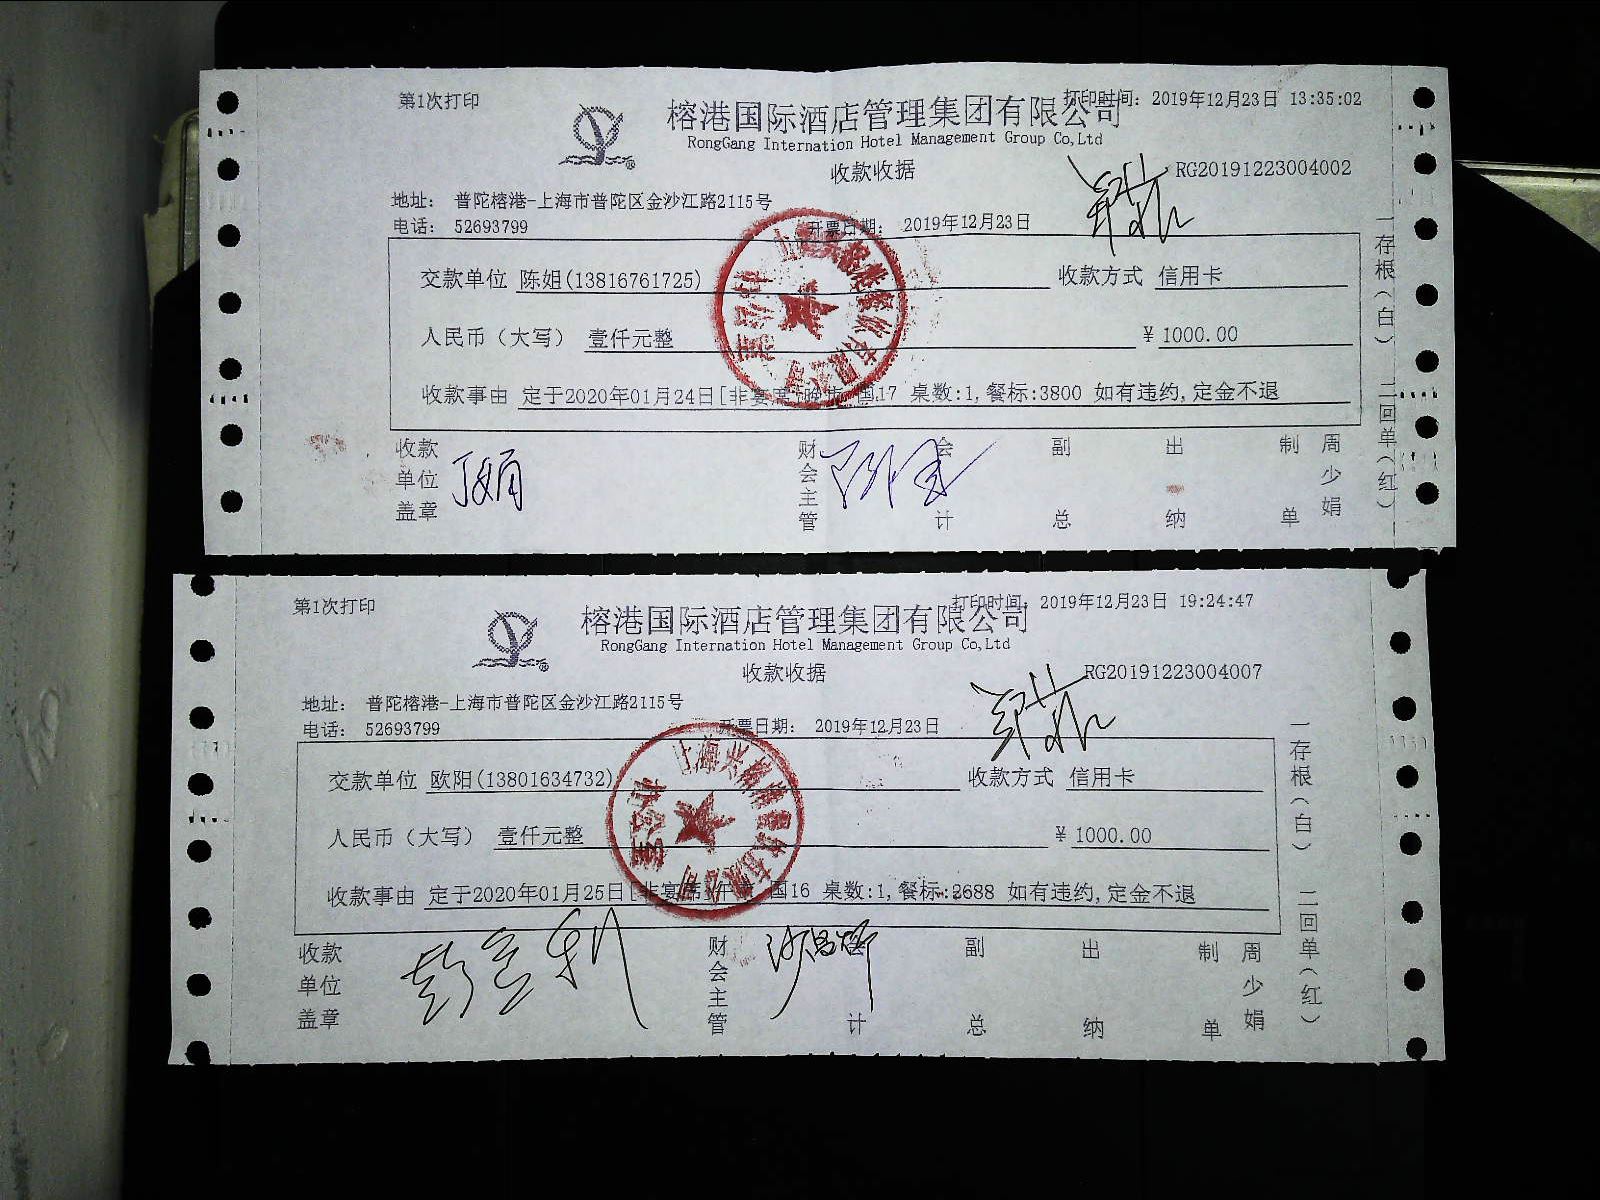 第1次打印
打印时间: 2019年12月23日 13:35:02
榕港国际酒店管理集团有限公司
RongGang Internation Hotel Management Group Co,Ltd
收款收据
RG20191223004002
地址: 普陀榕港-上海市普陀区金沙江路2115号
电话: 52693799
开票日期: 2019年12月23日
交款单位 陈姐(13816761725) 收款方式 信用卡
人民币(大写) 壹仟元整 ¥ 1000.00
收款事由 定于2020年01月24日[非宴席 晚市 国17 桌数:1,餐标:3800 如有违约,定金不退
收款单位盖章 丁娟 财会主管 会计 副总 出纳 制单 周少娟
一存根(白) 二回单(红)
第1次打印
打印时间: 2019年12月23日 19:24:47
榕港国际酒店管理集团有限公司
RongGang Internation Hotel Management Group Co,Ltd
收款收据
RG20191223004007
地址: 普陀榕港-上海市普陀区金沙江路2115号
电话: 52693799
开票日期: 2019年12月23日
交款单位 欧阳(13801634732) 收款方式 信用卡
人民币(大写) 壹仟元整 ¥ 1000.00
收款事由 定于2020年01月25日[非宴席 午市 国16 桌数:1,餐标:2688 如有违约,定金不退
收款单位盖章 财会主管 会计 副总 出纳 制单 周少娟
一存根(白) 二回单(红)